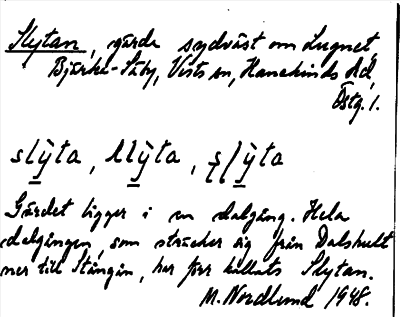 Slytan, gärde sydväst om Lugnet,
Bjärka-Säby, Vists sn, Hanekinds hd,
Östg. l.
slỳta, llỳta, ṣlỳta
Gärdet ligger i en dalgång. Hela
dalgången, som sträcker sig från Dalshult
ner till Stångån, har förr kallats Slytan.
M. Nordlund 1948.